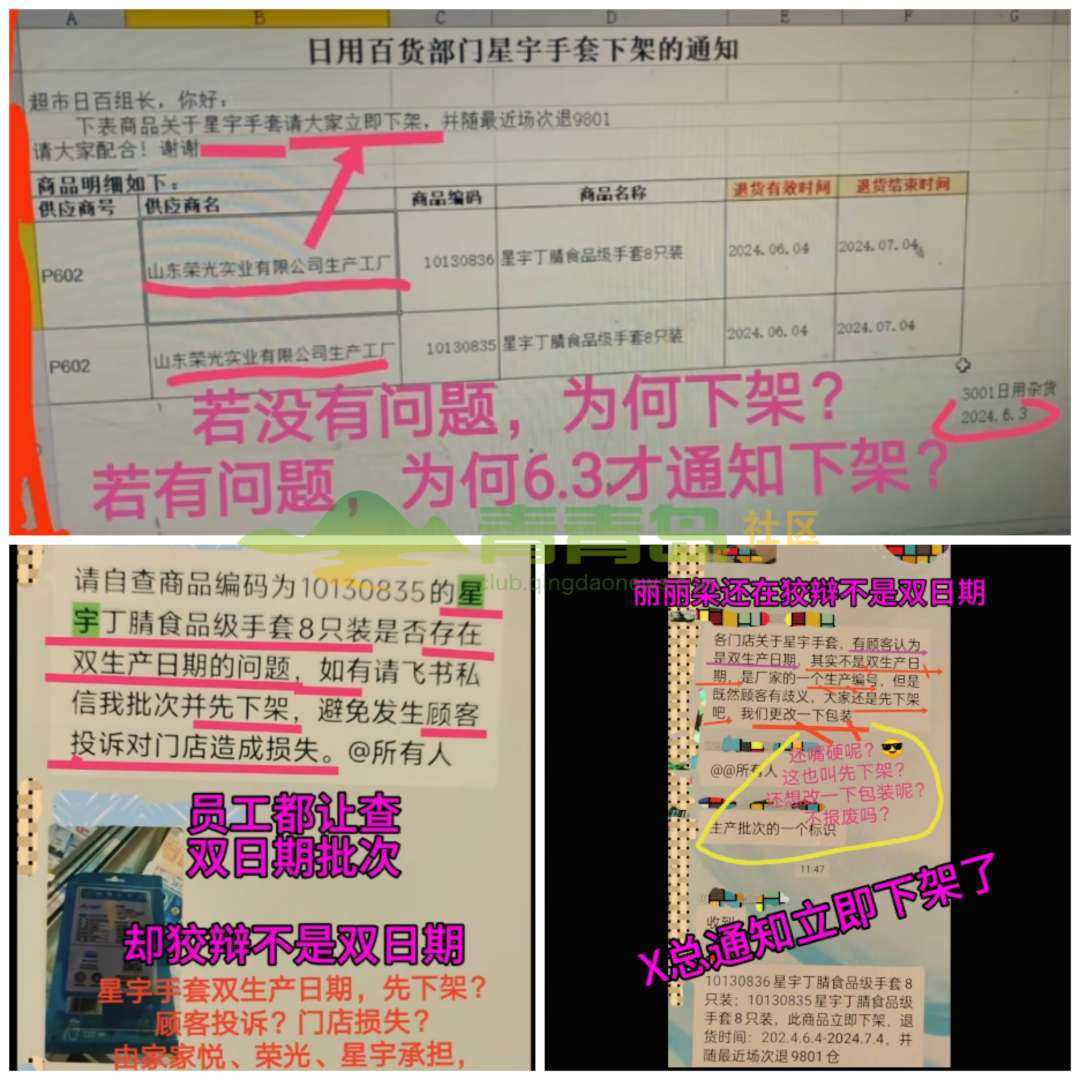 A B C D E F G
日用百货部门星宇手套下架的通知
超市日百组长，你好：
下表商品关于星宇手套请大家立即下架，并随最近场次退9801
请大家配合！谢谢
商品明细如下：
供应商号 供应商名 商品编码 商品名称 退货有效时间 退货结束时间
P602 山东荣光实业有限公司生产工厂 10130836 星宇丁腈食品级手套8只装 2024.06.04 2024.07.04
P602 山东荣光实业有限公司生产工厂 10130835 星宇丁腈食品级手套8只装 2024.06.04 2024.07.04
3001日用杂货
2024.6.3
若没有问题，为何下架？
若有问题，为何6.3才通知下架？
青青岛 社区
club.qingdaonews
请自查商品编码为10130835的星
宇丁腈食品级手套8只装是否存在
双生产日期的问题，如有请飞书私
信我批次并先下架，避免发生顾客
投诉对门店造成损失。@所有人
员工都让查
双日期批次
却狡辩不是双日期
星宇手套双生产日期，先下架？
顾客投诉？门店损失？
由家家悦、荣光、星宇承担，
丽丽梁还在狡辩不是双日期
各门店关于星宇手套，有顾客认为
是双生产日期，其实不是双生产日
期，是厂家的一个生产编号，但是
既然顾客有歧义，大家还是先下架
吧，我们更改一下包装
还嘴硬呢？
@@所有人
这也叫先下架？
还想改一下包装呢？
不报废吗？
生产批次的一个标识
11:47
收到
X总通知立即下架了
10130836星宇丁腈食品级手套8
只装；10130835星宇丁腈食品级
手套8只装，此商品立即下架，退
货时间：202.4.6.4-2024.7.4，并
随最近场次退9801仓